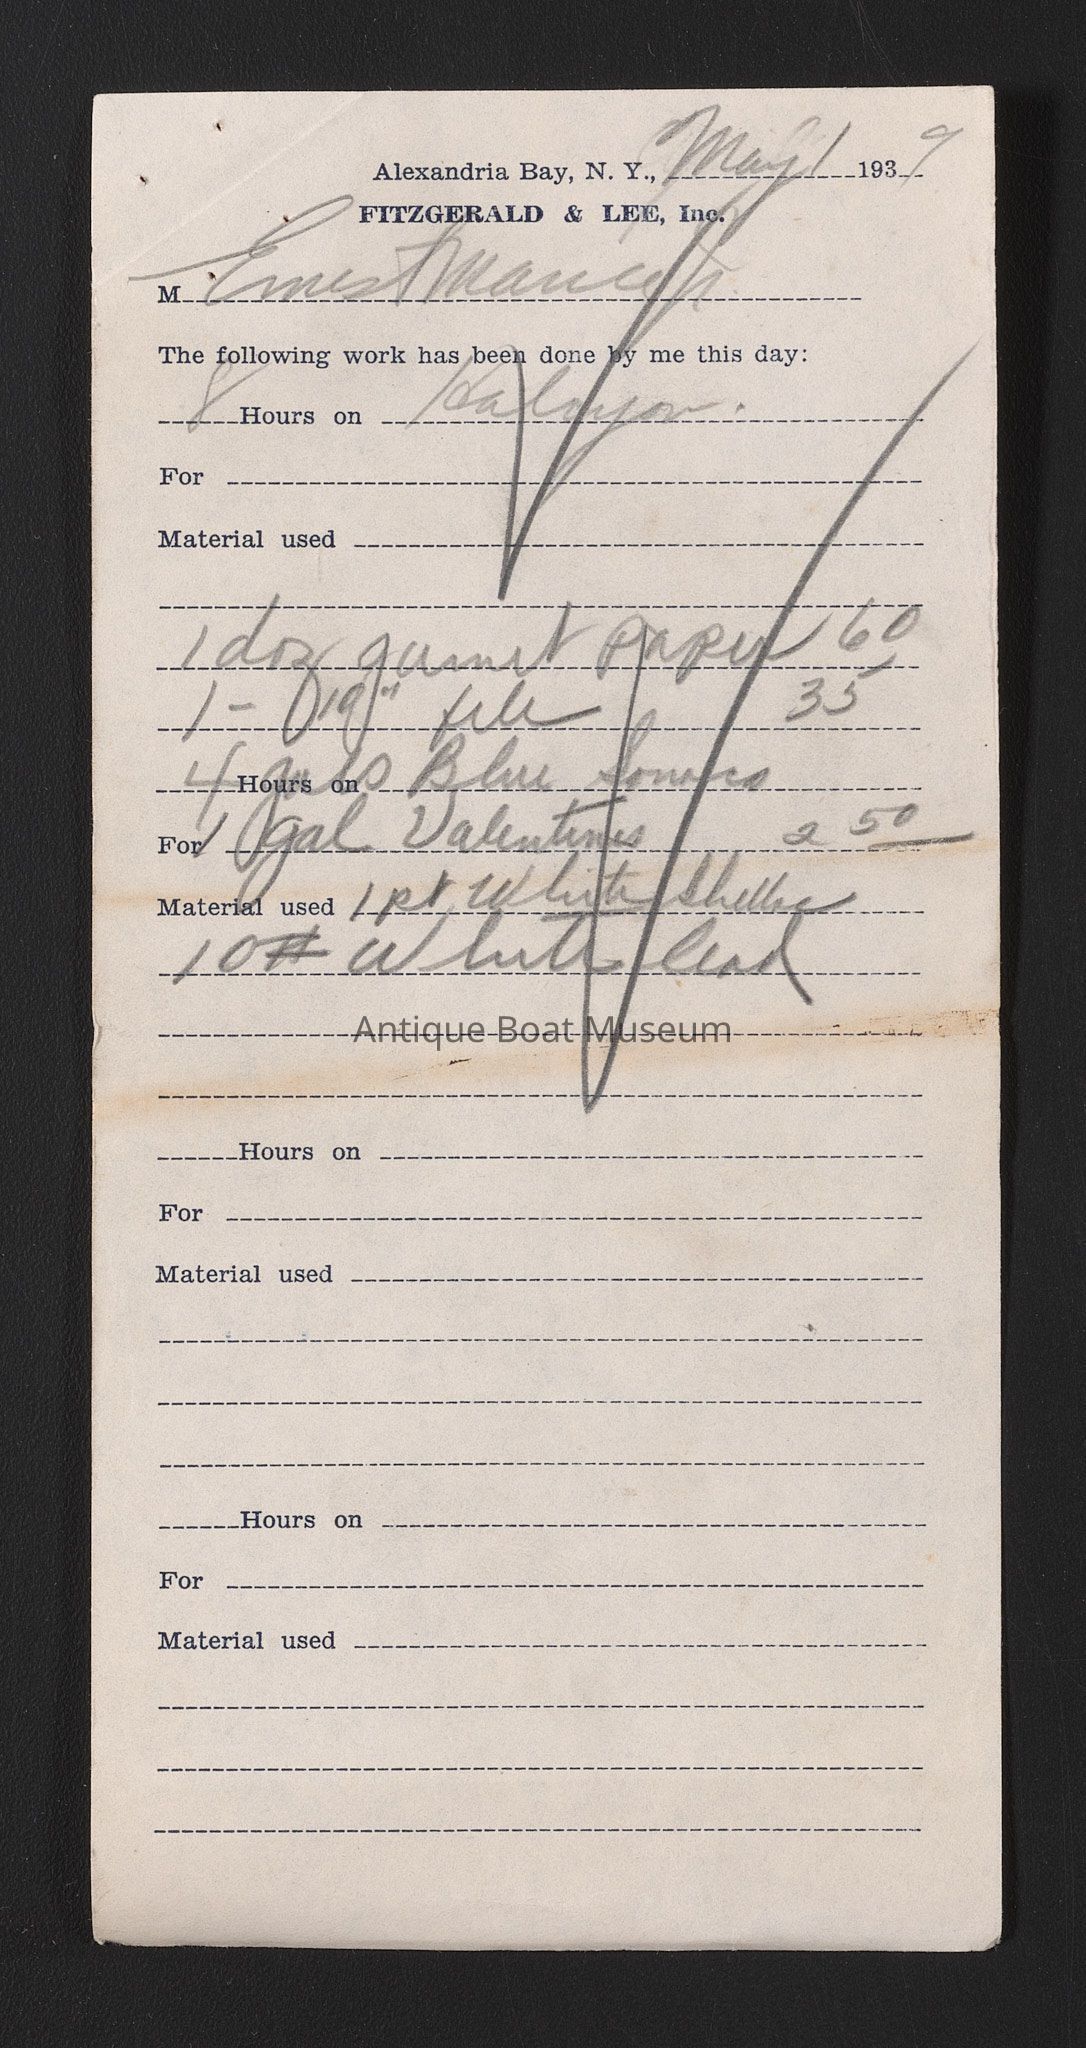 Alexandria Bay, N. Y., May 1 1939
FITZGERALD & LEE, Inc.
M Ernest
The following work has been done by me this day:
8 Hours on
For
Material used
1 doz garnet paper 60
1 - 10" file 35
4 Hours on Blue
For 1 gal Valentines 2 50
Material used 1 pt White Shellac
10# White lead
Antique Boat Museum
Hours on
For
Material used
Hours on
For
Material used